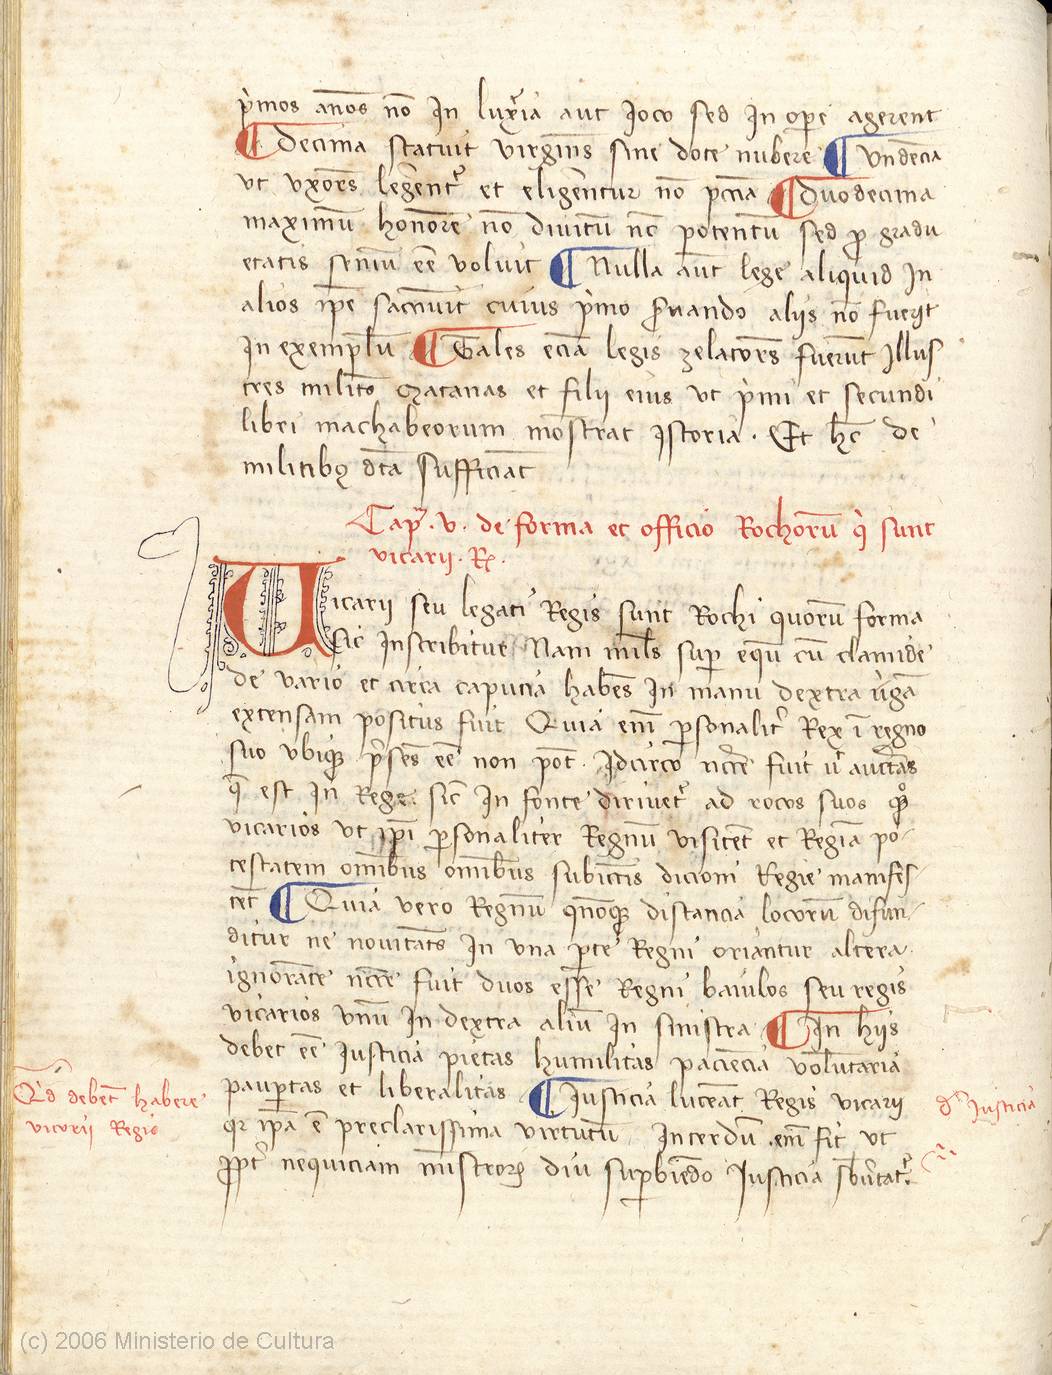 p̀mos anōs nō In luxi̾a aut Joco sed In oꝑe agerent
¶ Decima statuit virgīns sine dote nubere ¶ Vndēcia
vt vxorēs legēnt᷑ et eligēntur nō pccīa ¶ Duodecima
maximū honorē nō diuitū nē potentū sed ꝓ gradu
etatis seniū eē voluit ¶ Nulla aut lege aliquid In
alios ip̄e saccūit cuius p̀mo ẜuando aliis nō fuerit
In exemplū ¶ Tales eciā legis zelatorēs fuerūt Illus
tres militē Matanas et filij eius vt p̀mi et secundi
libri machabeorum mōstrat Istoria. Et hēc de
militibꝫ dc̄a sufficiāt
Cap̄. v. de forma et officio Rochorū q̀ sunt
vicarij. R.
Uicarij seu legati Regis sunt Rochi quorū forma
sic Inscribitur Nam mil̄s suꝑ eqū cū clamide
de vario et circa caputia habēs In manu dextra v̀gā
extensam positus fuit Quia eni̅ ꝑsonalit᷑ Rex ī regno
suo vbiqꝫ p̄sēs eē non pōt. Idcirco nccr̄e fuit vt auctāas
q̄ est In Rege. sic In fonte diriuet᷑ ad rocos suos qͣꝫ
vicarios vt ip̄i ꝑsonaliter Regnū visitēt et Regiā po-
testatem omībus omībus subiectis dicioni Regie manifes-
tēt ¶ Quia vero Regnū qn̄oqꝫ distancia locorū difun-
ditur ne nouitatēs In vna ꝑte Regni oriantur altera
ignorāte nccr̄e fuit duos essē Regni baiulos seu regis
vicarios vnū In dextra aliū In sinistra ¶ In hijs
debet eē Justicia pietas humilitas paciēcia volūtaria
pauꝑtas et liberalitas ¶ Justicia luceāt Regis vicarij
qr ip̄a ē preclarissima virtutū Interdū eni̅ fit vt
ꝓpt᷑ nequiciam mīstroꝝ diu suꝑbiēdo Justicia sbūtat᷑.
Qd debēt habere
vicarij Regis
dͤ Justicia
(c) 2006 Ministerio de Cultura